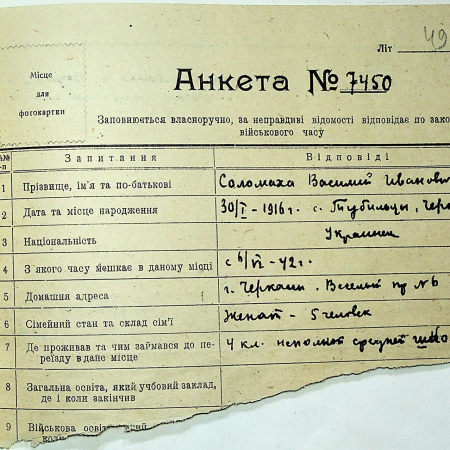 Літ 49
Місце
для
фотокартки
Анкета № 7450
Заповнюється власноручно, за неправдиві відомості відповідає по зако
військового часу
№№ Запитання Відповіді
1 Прізвище, ім'я та по-батькові Соломаха Василий Иванови
2 Дата та місце народження 30/I - 1916 г. с. Тубильци, Чер
3 Національність Украинец
4 З якого часу мешкає в даному місці с 6/VI - 42 г.
5 Домашня адреса г. Черкасы. Веселый пр № 6
6 Сімейний стан та склад сім'ї Женат - 5 человек
7 Де проживав та чим займався до пе-
реїзду в дане місце 4 кл. неполной средней шко
8 Загальна освіта, який учбовий заклад,
де і коли закінчив
9 Військова осві
коли